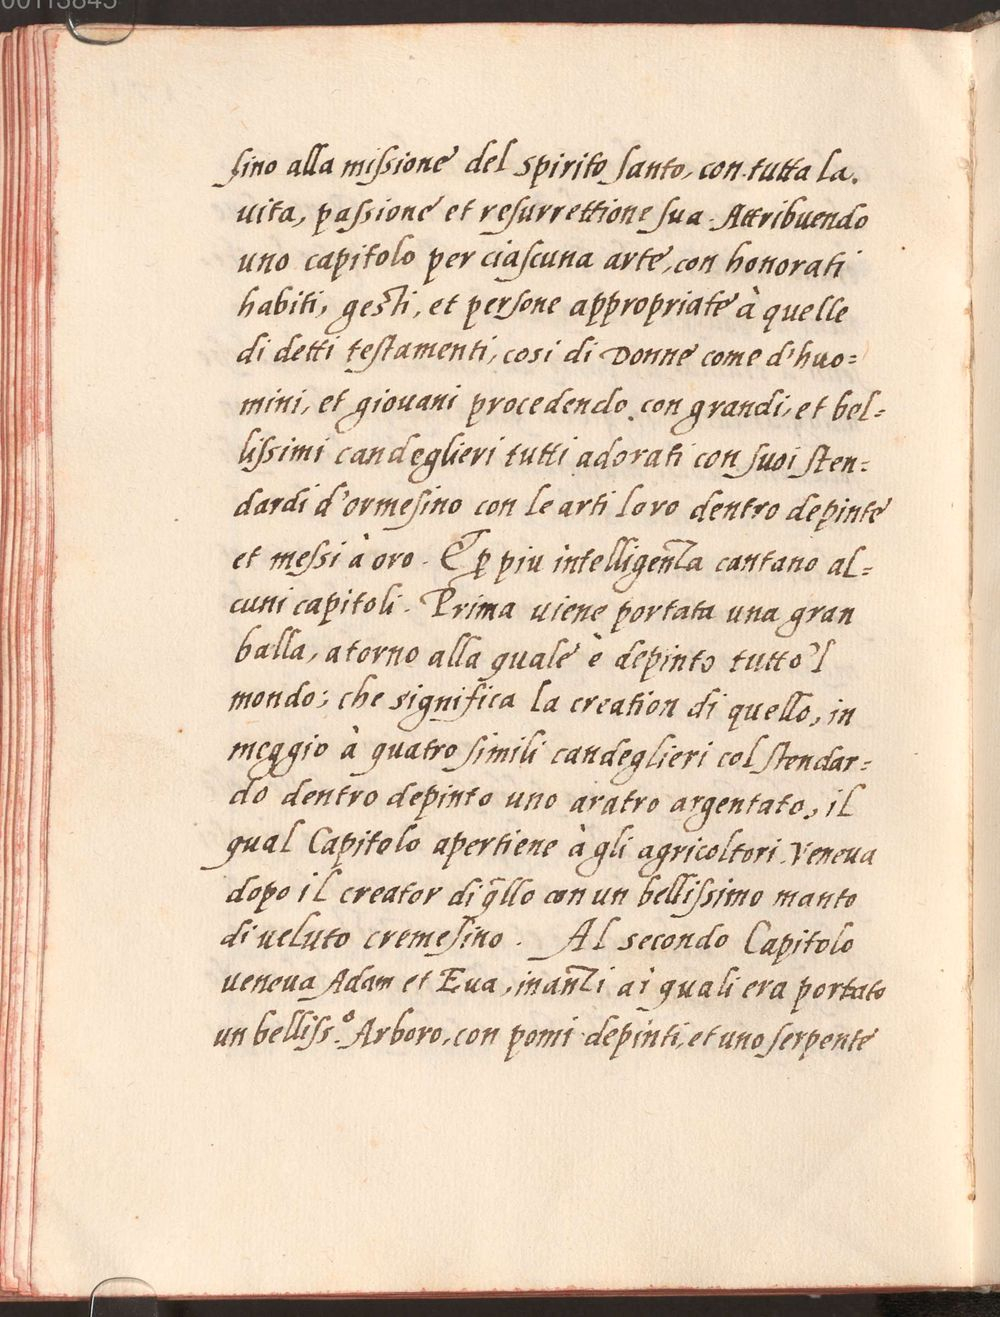 00113845
sino alla missione del spirito santo, con tutta la
vita, passione et resurrettione sua. Attribuendo
uno capitolo per ciascuna arte, con honorati
habiti, gesti, et persone appropriate à quelle
di detti testamenti, cosi di Donne come d'huo=
mini, et giovani procedendo con grandi, et bel=
lissimi candeglieri tutti adorati con suoi sten=
dardi d'ormesino con le arti loro dentro depinte
et messi à oro. Et p piu intelligentia cantano al=
cuni capitoli. Prima uiene portata una gran
balla, atorno alla quale è depinto tutto'l
mondo; che significa la creation di quello, in
meggio à quatro simili candeglieri col stendar=
do dentro depinto uno aratro argentato, il
qual Capitolo apertiene à gli agricoltori. Veneua
dopo il creator di q̃llo con un bellissimo manto
di ueluto cremesino. Al secondo Capitolo
ueneua Adam et Eua, inanti ai quali era portato
un belliss.º Arboro, con pomi depinti, et uno serpente